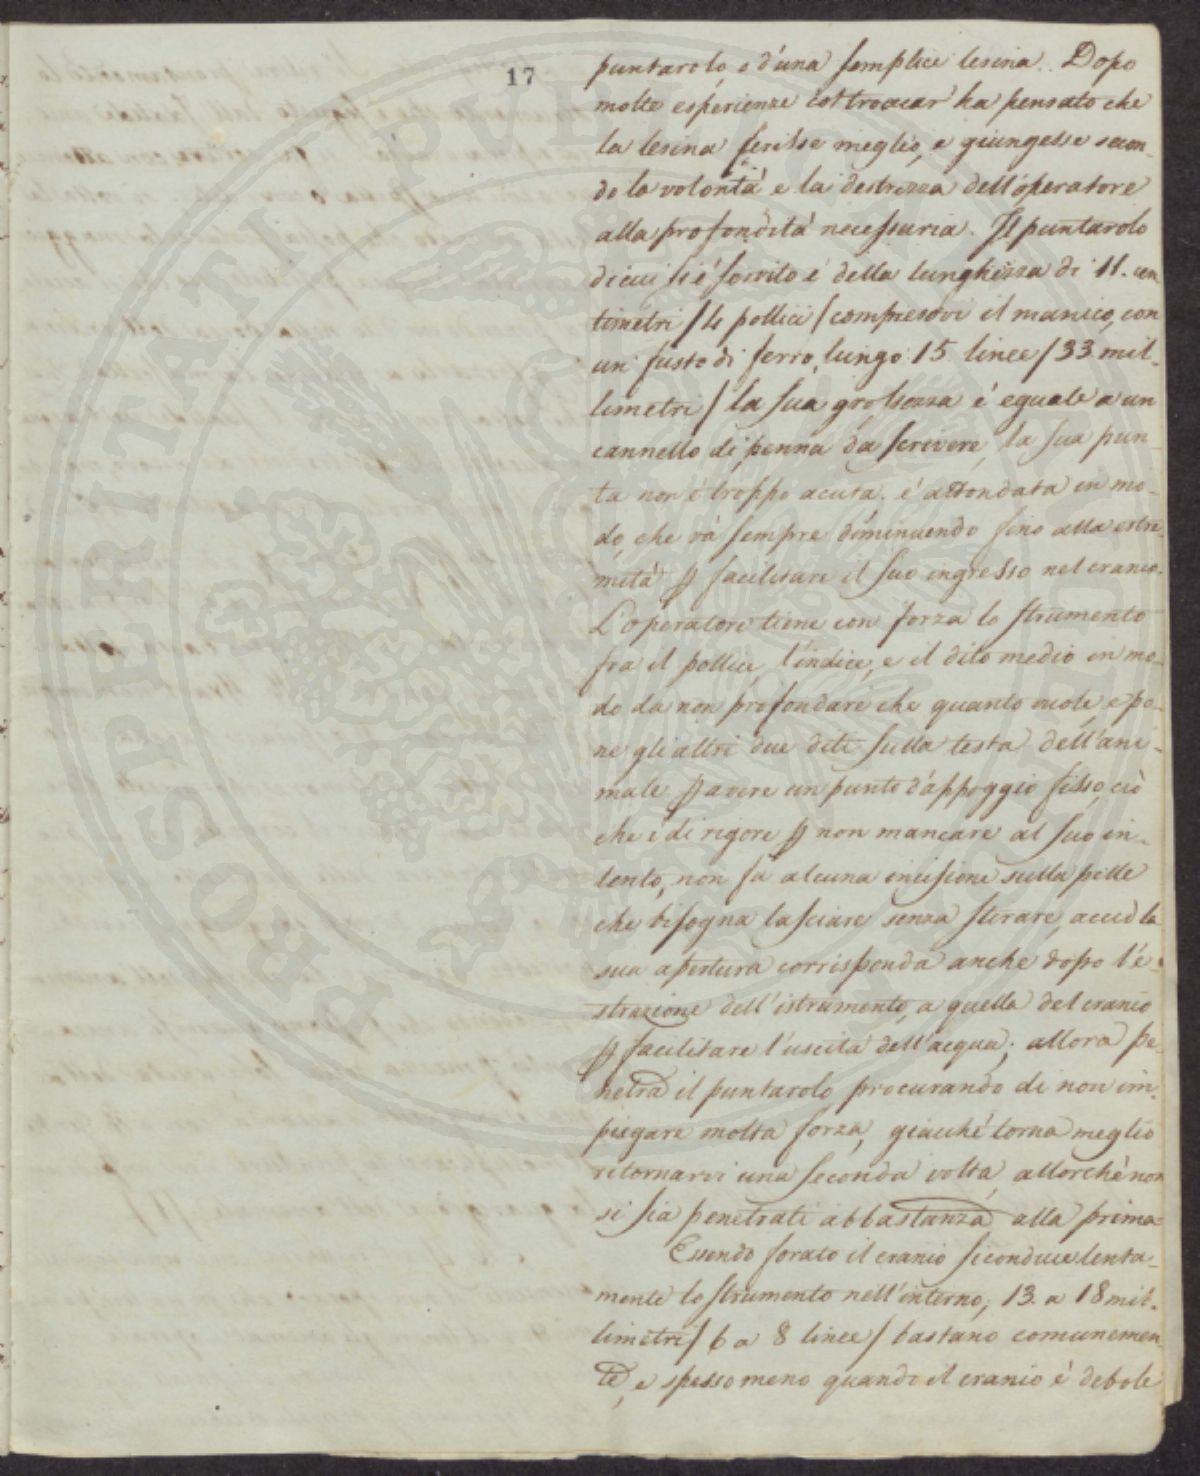 17
puntarolo, o d'una semplice lesina. Dopo
molte esperienze col trocar ha pensato che
la lesina ferisse meglio, e giungesse secon-
do la volontà e la destrezza dell'operatore
alla profondità necessaria. Il puntarolo
di cui si è servito è della lunghezza di 11. cen
timetri / 4 pollici / compresovi il manico, con
un fusto di ferro, lungo 15 linee / 33 mil-
limetri / la sua grossezza è eguale a un
cannello di penna da scrivere, la sua pun
ta non è troppo acuta. è attondata in mo-
do, che và sempre diminuendo fino alla estre
mità ꝑ facilitare il suo ingresso nel cranio.
L'operatore tiene con forza lo strumento
fra il pollice, l'indice, e il dito medio in mo-
do da non profondare che quanto vuole, e po-
ne gli altri due diti sulla testa dell'ani-
male ꝑ avere un punto d'appoggio fisso, ciò
che è di rigore ꝑ non mancare al suo in-
tento, non fa alcuna incisione sulla pelle
che bisogna lasciare senza stirare, acciò la
sua apertura corrisponda anche dopo l'e-
strazione dell'istrumento, a quella del cranio
ꝑ facilitare l'uscita dell'acqua; allora pe-
netra il puntarolo procurando di non im-
piegare molta forza, giacchè torna meglio
ritornarvi una seconda volta, allorchè non
si sia penetrati abbastanza alla prima=
Essendo forato il cranio si conduce lenta-
mente lo strumento nell'interno; 13. a 18 mil-
limetri / 6 a 8 linee / bastano comunemen
te, e spesso meno quando il cranio è debole
PROSPERITATI PVBLICAE